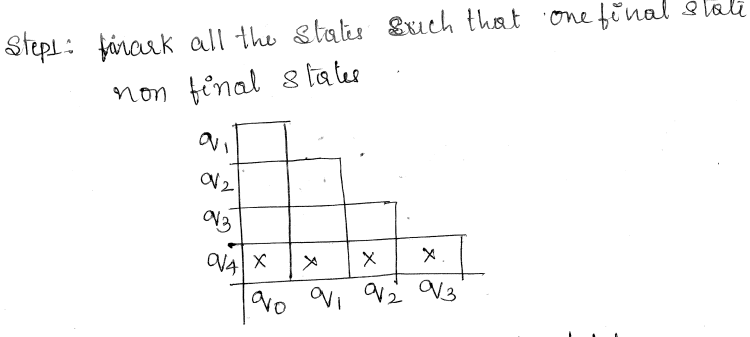 Step1: mark all the states such that one final state
non final states
q1
q2
q3
q4 x x x x
q0 q1 q2 q3